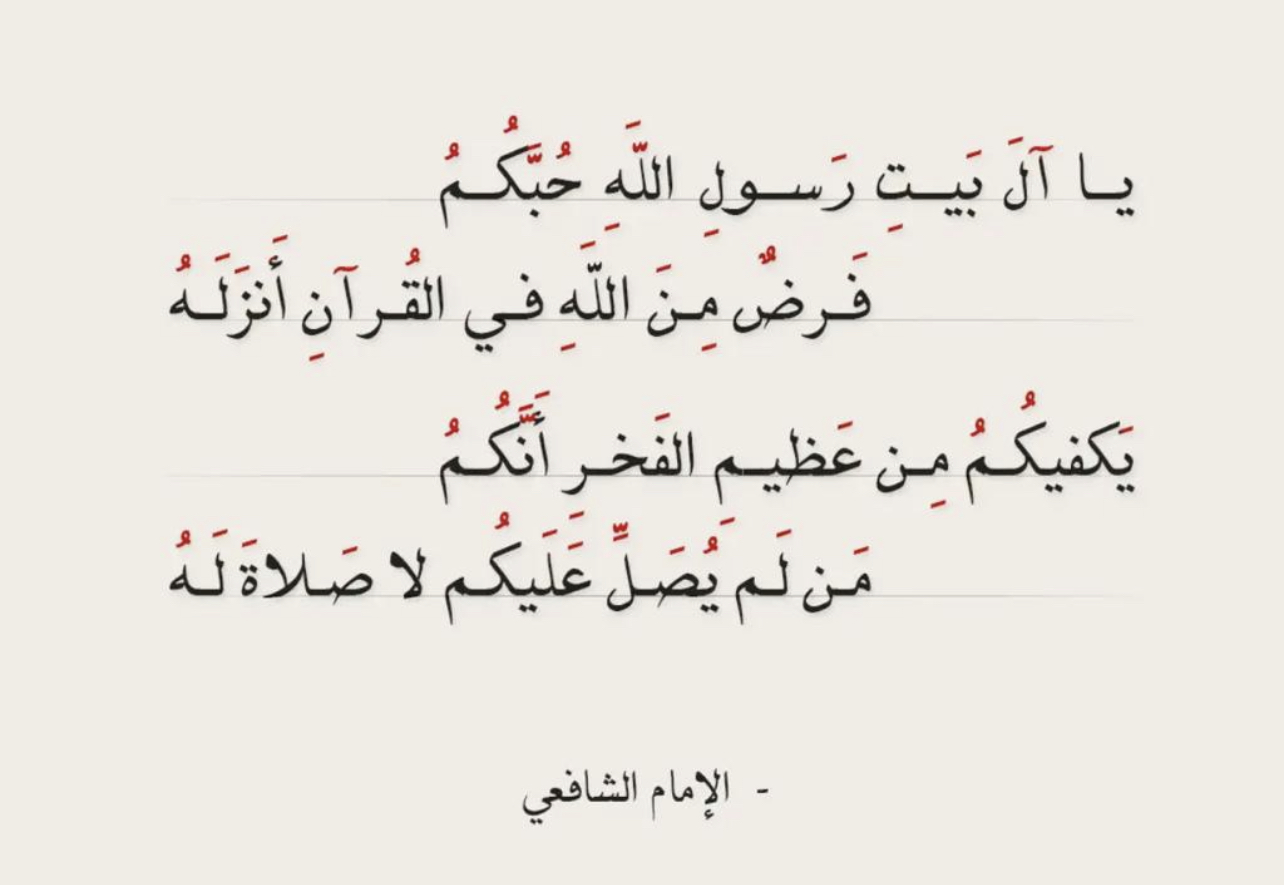 يا آلَ بَيتِ رَسولِ اللَّهِ حُبَّكُمُ
فَرضٌ مِنَ اللَّهِ في القُرآنِ أَنزَلَهُ
يَكفيكُمُ مِن عَظيم الفَخر أَنَّكُمُ
مَن لَم يُصَلِّ عَلَيكُم لا صَلاةَ لَهُ
- الإمام الشافعي